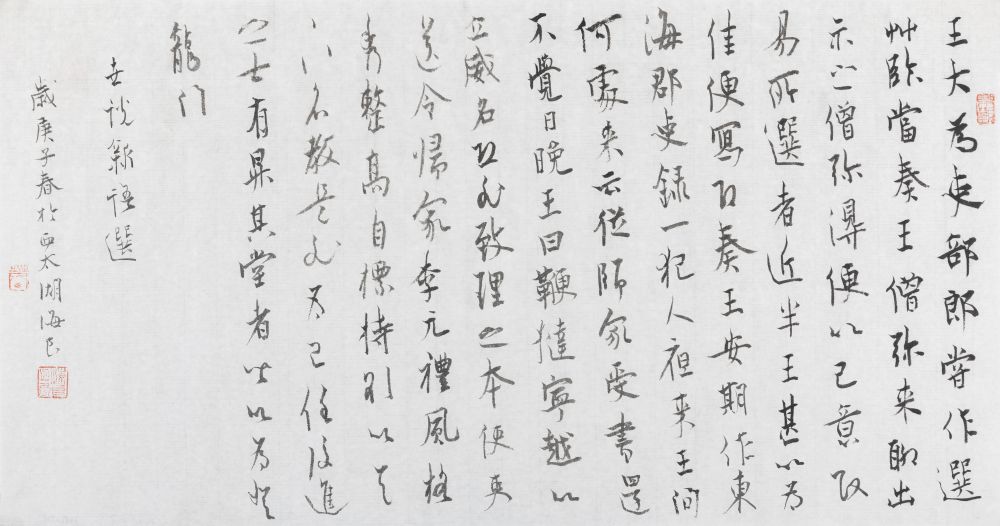 王大為吏部郎嘗作選
艸臨當奏王僧弥来聊出
示之僧弥得便以己意改
易所選者近半王甚以為
佳便寫即奏王安期作東
海郡吏録一犯人夜来王問
何處来云從師家受書還
不覺日晚王曰鞭撻寧越以
立威名恐非致理之本使吏
送令歸家李元禮風格
秀整高自標持以天
下名教是非為己任後進
之士有昇其堂者皆以為登
龍門
世說新語選
歲庚子春於西太湖海民